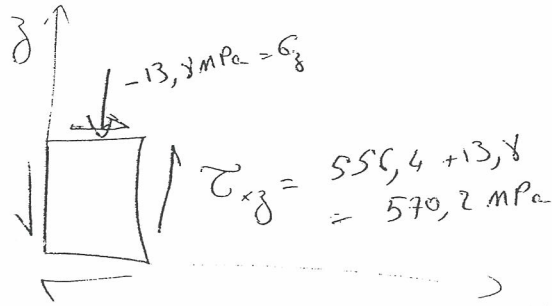 z
-13,8 MPa = σz
τxz = 556,4 + 13,8
= 570,2 MPa